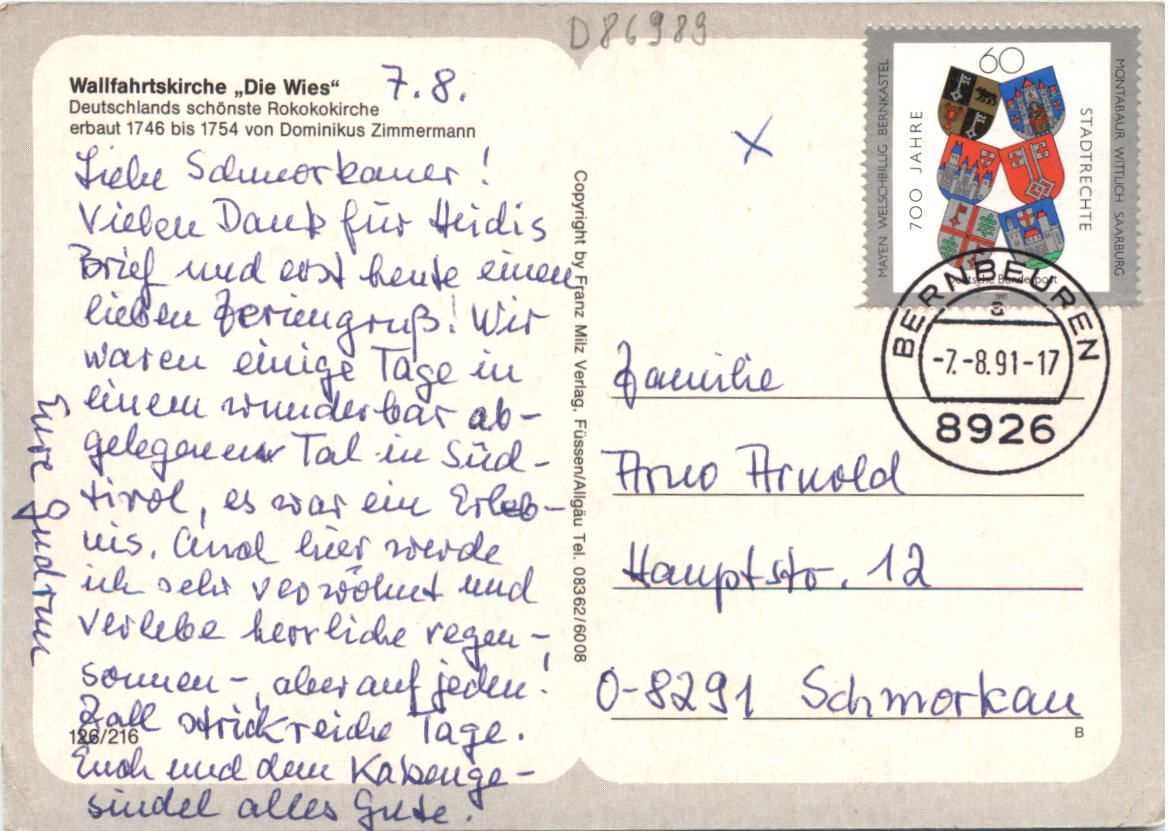 D86989
Wallfahrtskirche „Die Wies“
7.8.
Deutschlands schönste Rokokokirche
erbaut 1746 bis 1754 von Dominikus Zimmermann
Liebe Schmorkauer!
Vielen Dank für Heidis
Brief und erst heute einen
lieben Feriengruß! Wir
waren einige Tage in
einem wunderbar ab-
gelegenen Tal in Süd-
tirol, es war ein Erleb-
nis. Auch hier werde
ich sehr verwöhnt und
verlebe herrliche regen-,
sonnen-, aber auf jeden
Fall strickreiche Tage.
126/216
Euch und dem Katzenge-
sindel alles Gute!
Eure Gudrun
Copyright by Franz Milz Verlag, Füssen/Allgäu Tel. 08362/6008
X
60
MAYEN WELSCHBILLIG BERNKASTEL
700 JAHRE
STADTRECHTE
MONTABAUR WITTLICH SAARBURG
Deutsche Bundespost
1991
BERNBEUREN
-7.-8.91-17
8926
Familie
Arno Arnold
Hauptstr. 12
O-8291 Schmorkau
B